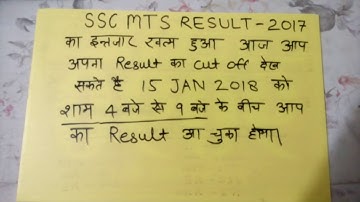 SSC MTS RESULT-2017
का इन्तजार खत्म हुआ आज आप
अपना Result का cut off देख
सकते है 15 JAN 2018 को
शाम 4 बजे से 9 बजे के बीच आप
का Result आ चुका होगा।